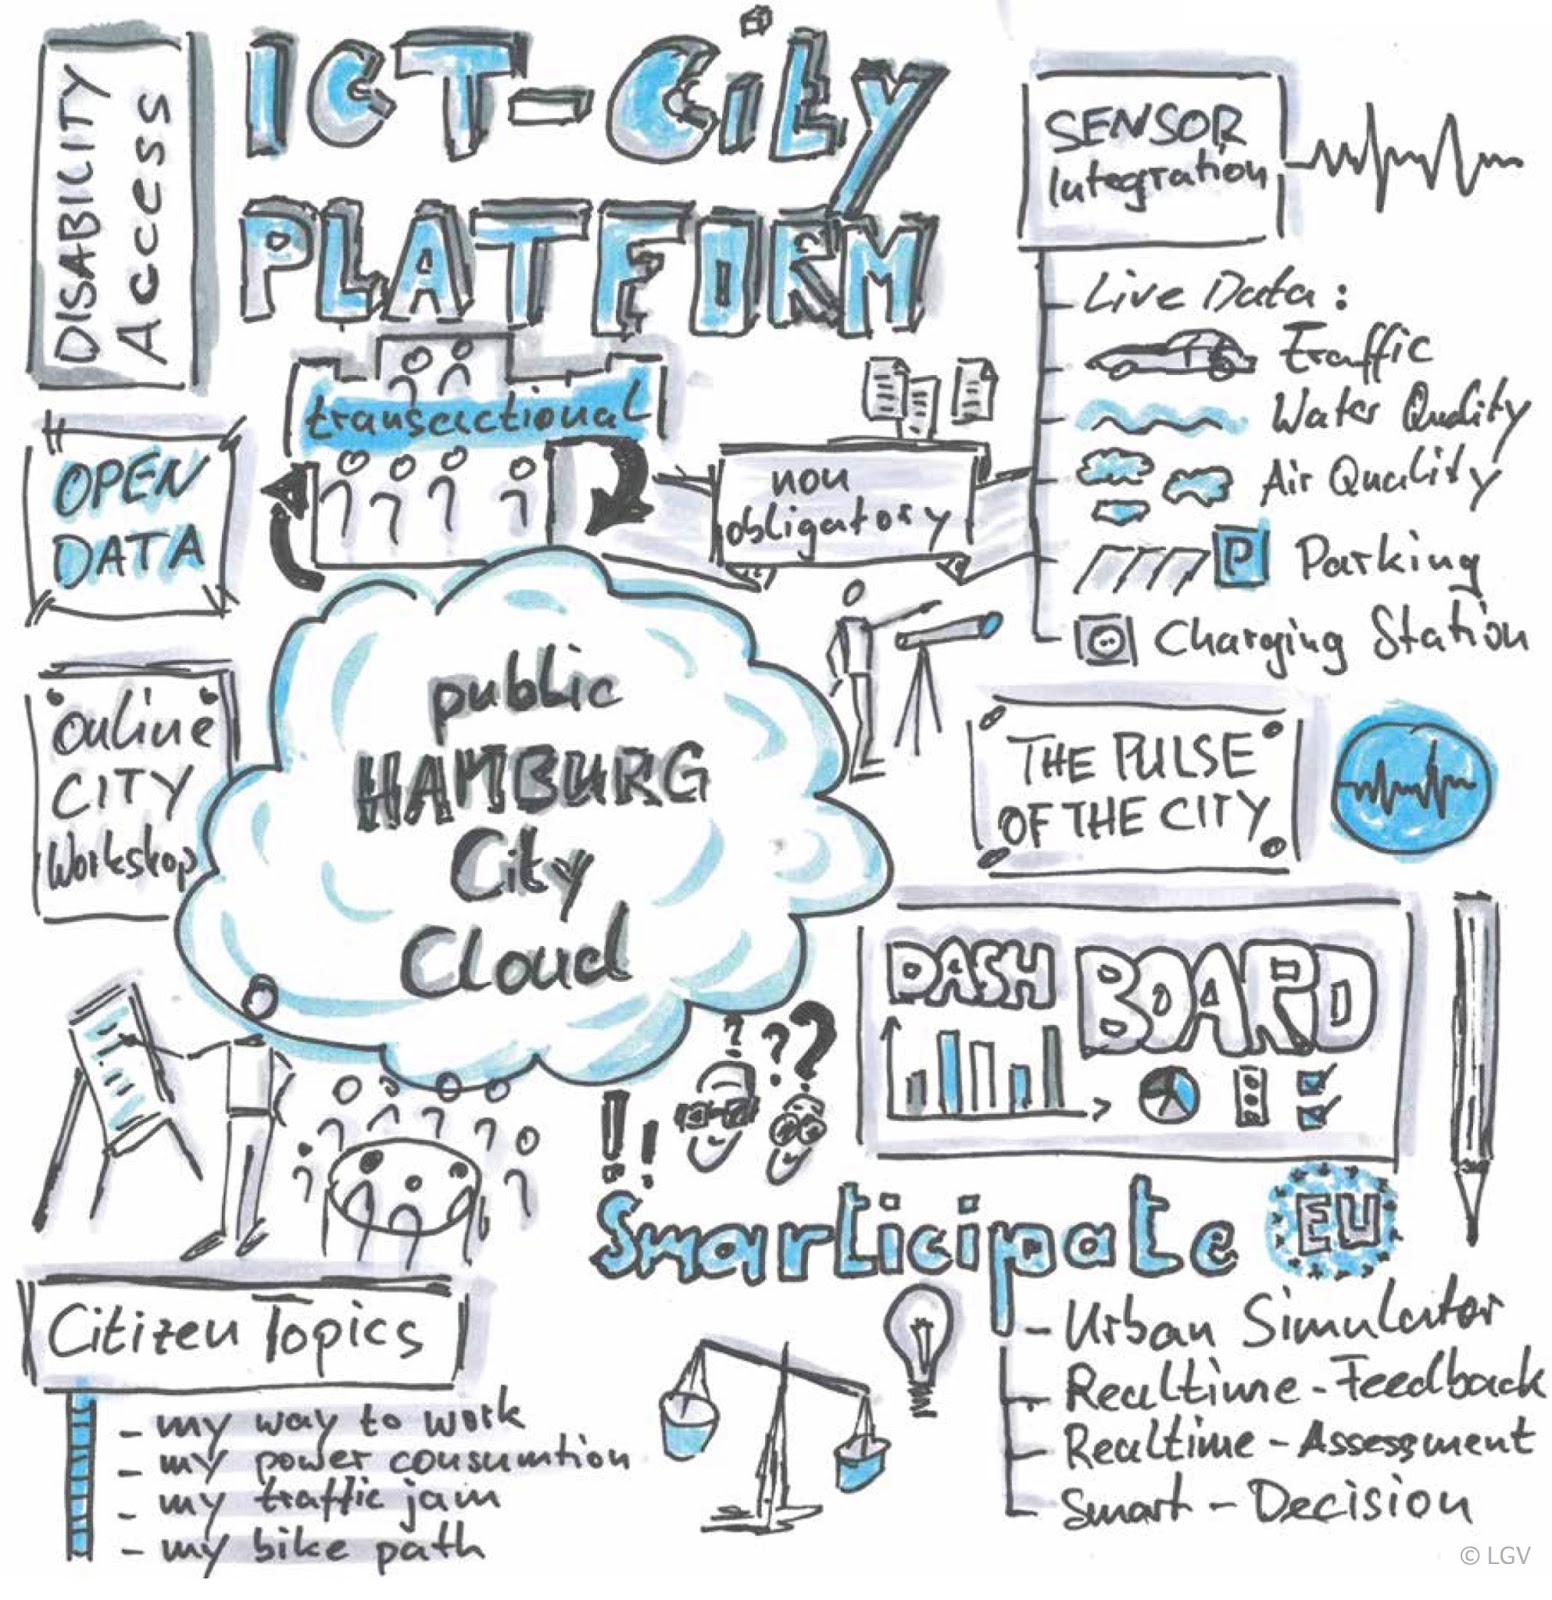 DISABILITY
Access
ICT-City
PLATFORM
SENSOR
Integration
Live Data:
Traffic
Water Quality
Air Quality
P Parking
Charging Station
transactional
non
obligatory
OPEN
DATA
online
CITY
Workshop
public
HAMBURG
City
Cloud
THE PULSE
OF THE CITY
DASH BOARD
? ??
!!
Smarticipate EU
- Urban Simulator
- Realtime-Feedback
- Realtime-Assessment
- Smart-Decision
Citizen Topics
- my way to work
- my power consumtion
- my traffic jam
- my bike path
© LGV